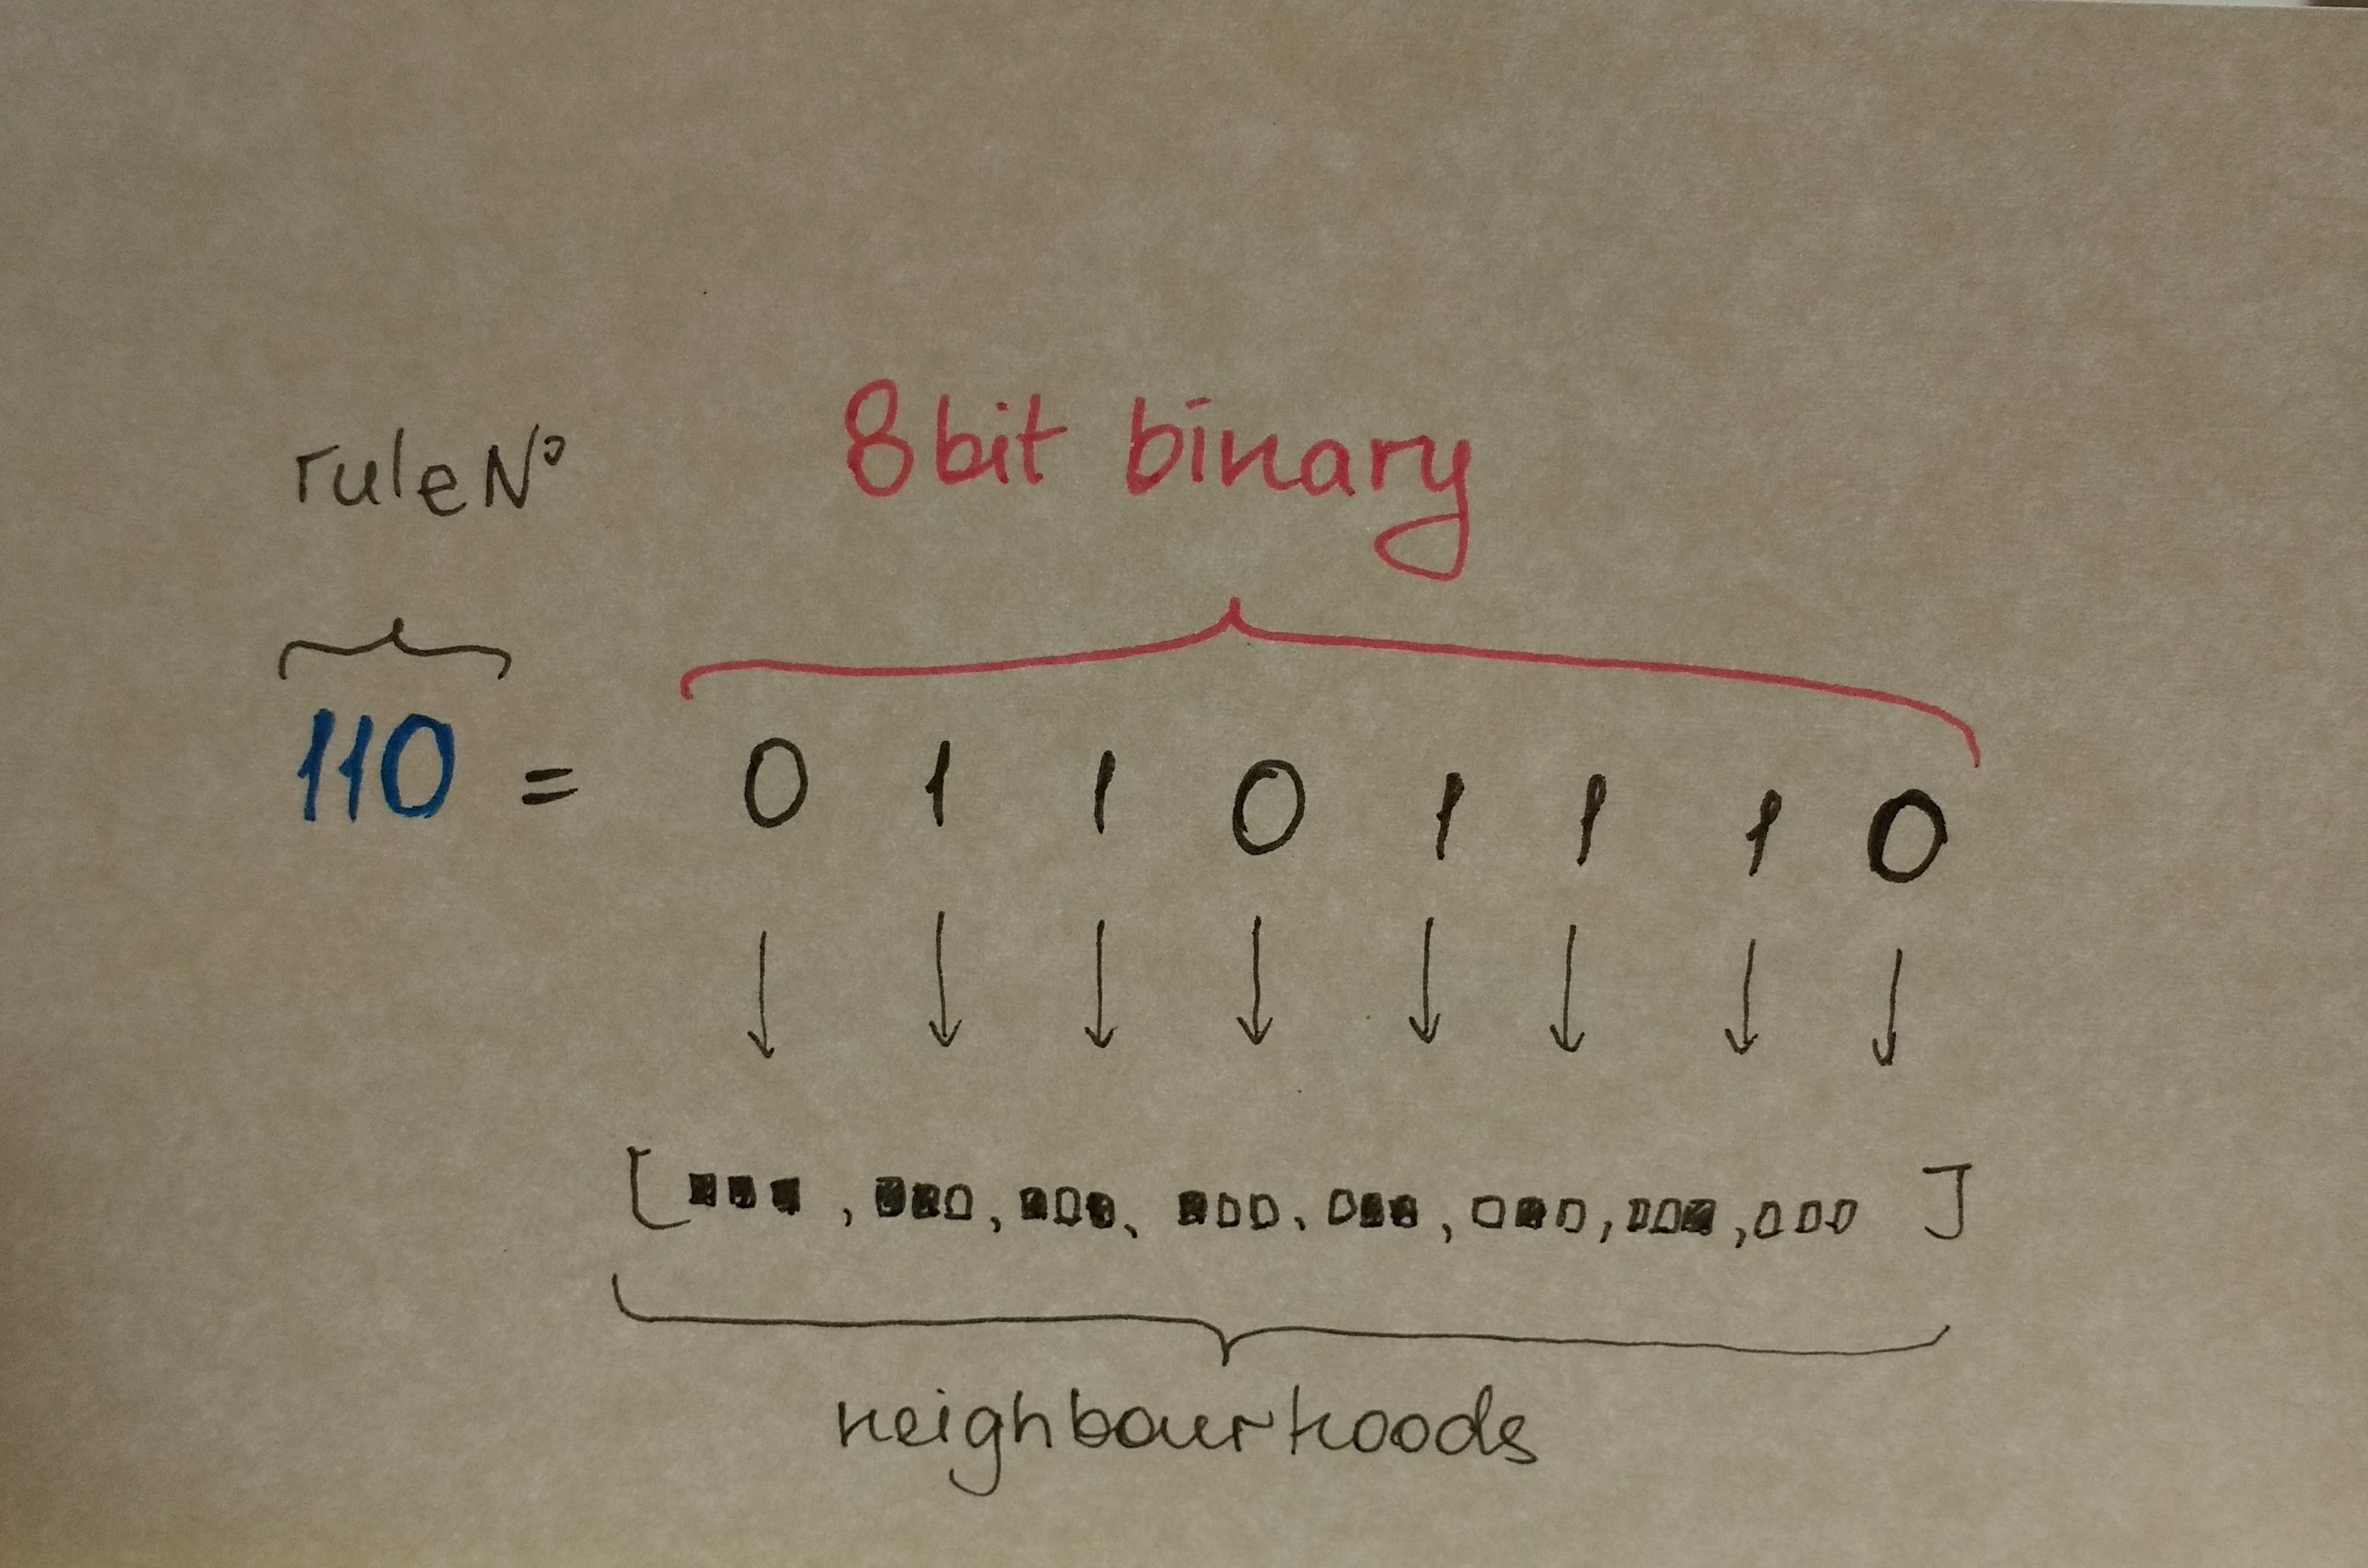 ruleN° 8bit binary
110 = 0 1 1 0 1 1 1 0
↓ ↓ ↓ ↓ ↓ ↓ ↓ ↓
[■■■, ■■□, ■□■, ■□□, □■■, □■□, □□■, □□□]
neighbourhoods